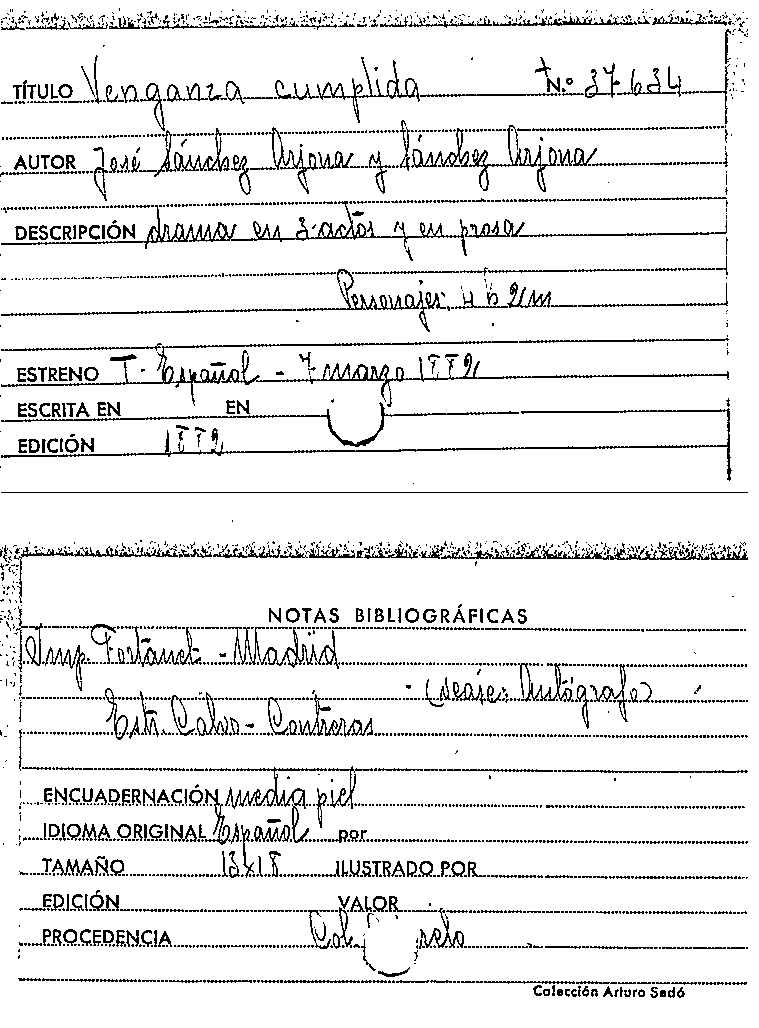 TÍTULO Venganza cumplida N.º 37634
AUTOR José Sánchez Arjona y Sánchez Arjona
DESCRIPCIÓN drama en 3 actos y en prosa
Personajes: 4 h 2 m
ESTRENO T. Español - 7 marzo 1882
ESCRITA EN EN
EDICIÓN 1882
NOTAS BIBLIOGRÁFICAS
Imp. Fortanet - Madrid
(Autógrafo)
Estr. Calvo - Contreras
ENCUADERNACIÓN media piel
IDIOMA ORIGINAL Español por
TAMAÑO 13x18 ILUSTRADO POR
EDICIÓN VALOR
PROCEDENCIA
Colección Arturo Sedó